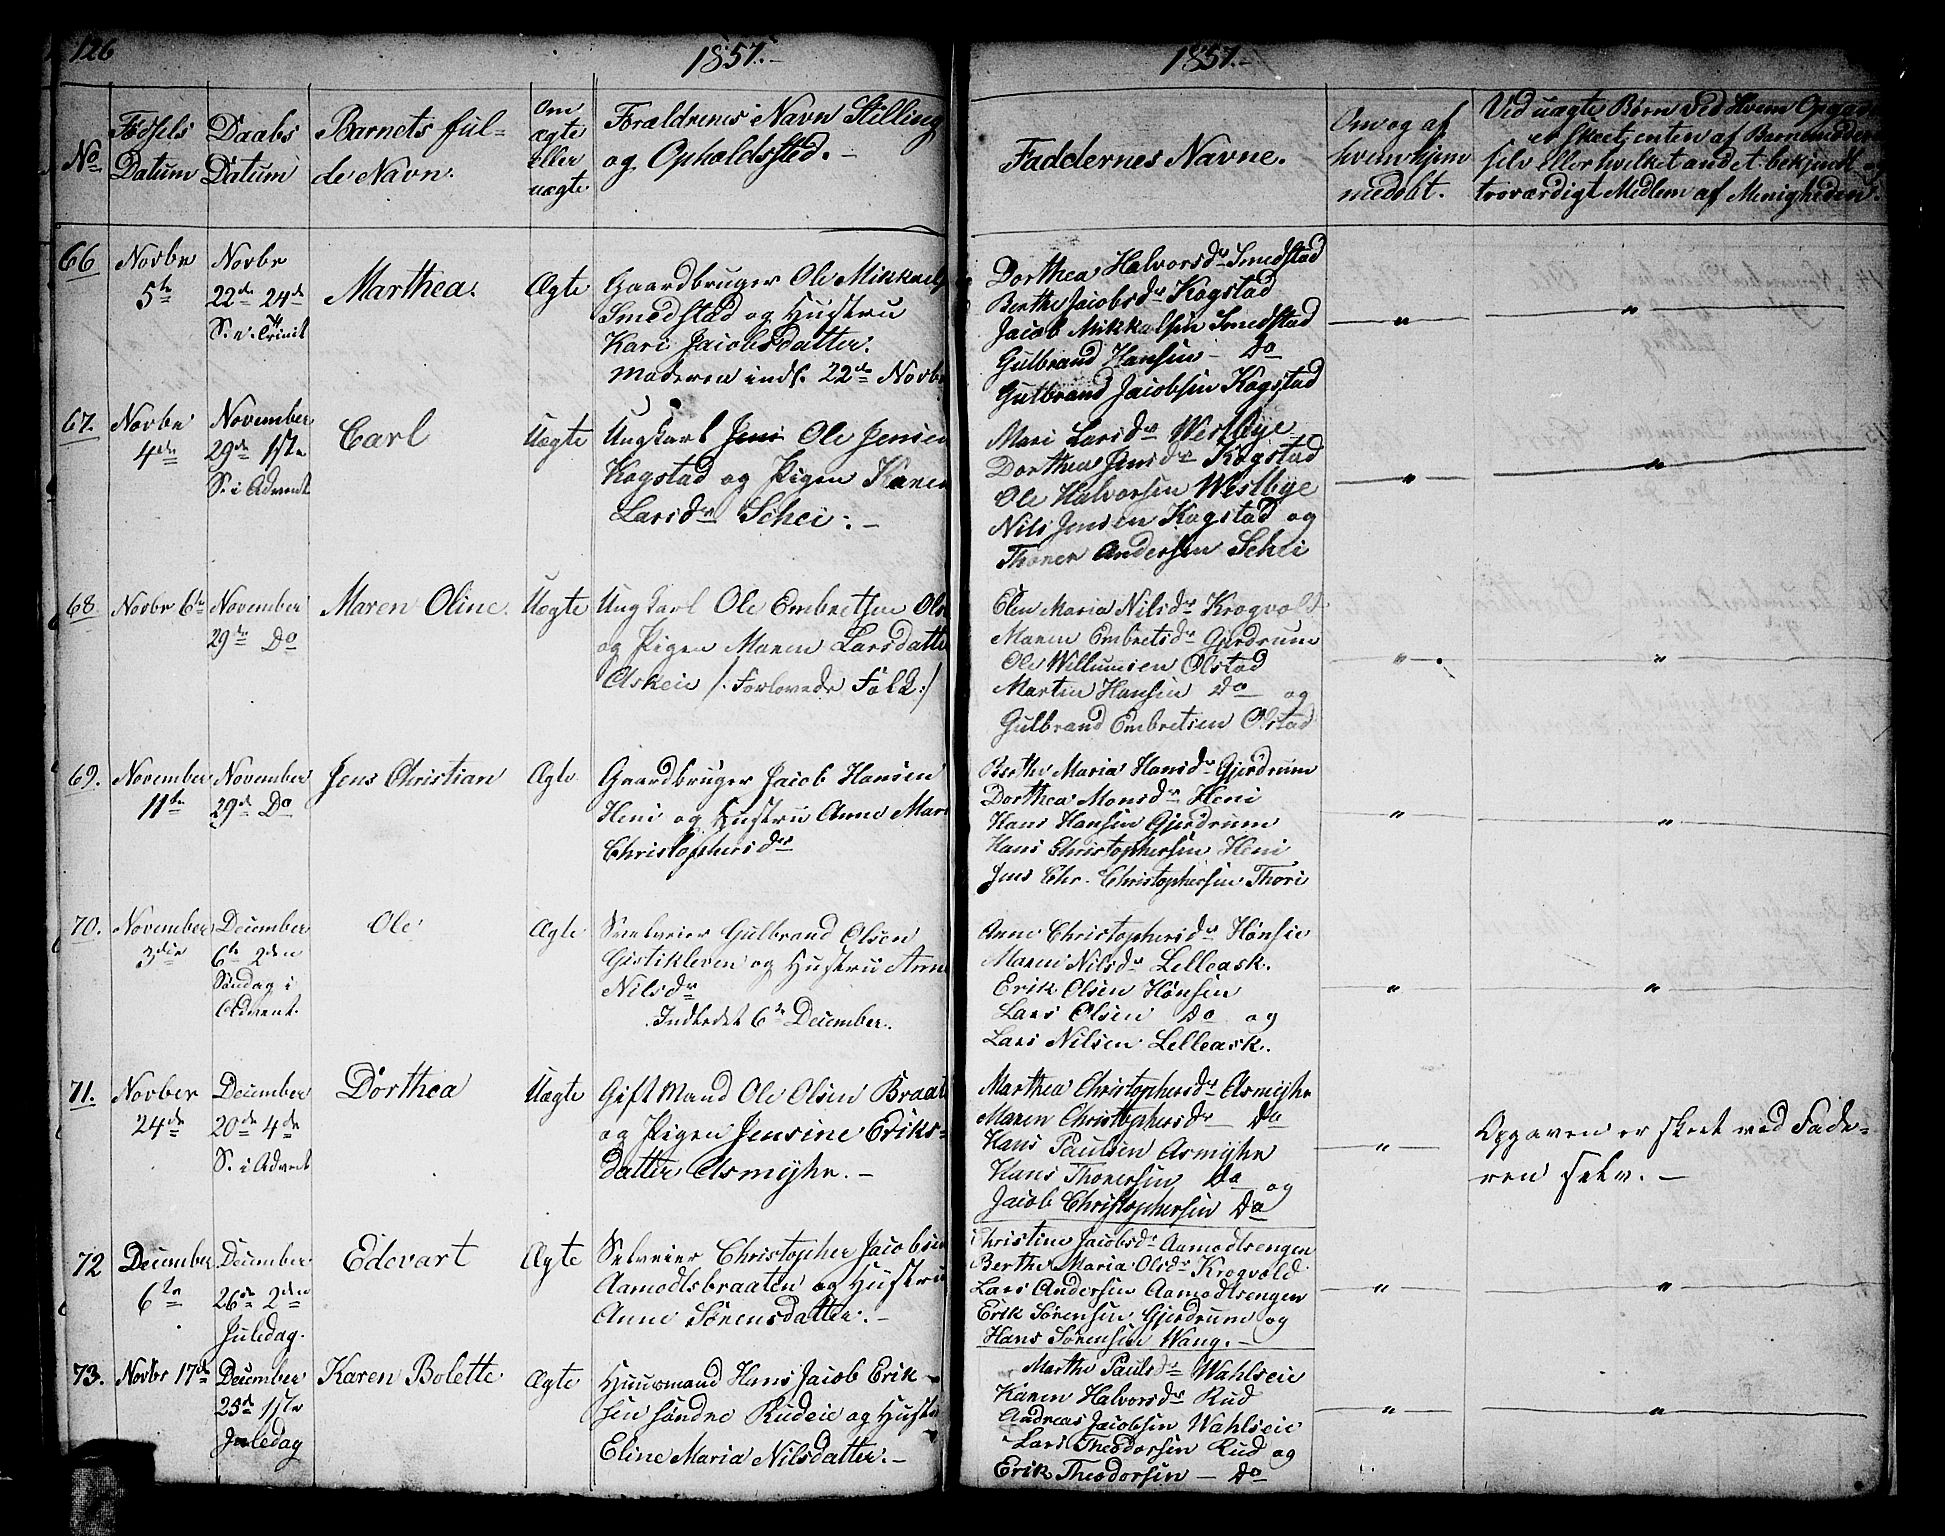 126
1857.-
No
Fødsels
Datum
Daabs
Datum
Barnets ful-
de Navn.
Om
ægte
eller
uægte
Forældrenes Navn Stilling
og Opholdsted. -
66
Novbr
5te
Novbr
22de 24de
S. e. Trinit
Marthea.
Ægte
Gaardbruger Ole Mikkels
Smedstad og Hustru
Kari Jacobsdatter.
Moderen indl. 22de Novbr
67.
Novbr
4de
November
29de 1ste
S. i Advent
Carl
Uægte
Ungkarl Jens Ole Jensen
Kogstad og Pigen Karen
Larsdr Schei. -
68.
Novbr 6te
November
29de Do
Maren Oline.
Uægte
Ungkarl Ole Embretsen Ols
og Pigen Maren Larsdatte
Askeie /: Forlovede Folk :/
69.
November
11te
November
29de Do
Jens Christian
Ægte
Gaardbruger Jacob Hansen
Heni og Hustru Anne Mari
Christophersdr
70.
November
3die
December
6te 2den
Søndag i
Advent.
Ole
Ægte
Selveier Gulbrand Olsen
Gistikleven og Hustru Anne
Nilsdr
Indledet 6te December.
71.
Novber
24de
December
20de 4de
S. i Advent
Dorthea
Uægte
Gift Mand Ole Olsen Braat
og Pigen Jensine Eriks-
datter Asmyhr. -
72
December
6te
December
26de 2den
Juledag.
Edevart
Ægte
Selveier Christopher Jacobsen
Aamodtsbraaten og Hustru
Anne Sørensdatter. -
73.
Novbr 17de
December
25de 1ste
Juledag
Karen Bolette
Ægte
Huusmand Hans Jacob Erik-
sen søndre Rudeie og Hustr
Eline Maria Nilsdatter. -
1857.-
Faddernes Navne.
Om og af
hvem hjem
medøbt.
Ved uægte Børn ved Hvem Opgav
er skeet, enten af Barnemoderen
selv eller hvilket andet bekjendt og
troværdigt Medlem af Menigheden.
Dorthea Halvorsdr Smedstad
Berthe Jacobsdr Kogstad
Jacob Mikkelsen Smedstad
Gulbrand Hansen - Do
Gulbrand Jacobsen Kogstad
"
"
Mari Larsdr Westbye
Dorthea Jensdr Kogstad
Ole Halvorsen Westbye
Nils Jensen Kogstad og
Thoner Andersen Schei
"
"
Elen Maria Nilsdr Krogvold
Maren Embretsdr Gjerdrum
Ole Willumsen Olstad
Martin Hansen Do og
Gulbrand Embretsen Olstad
"
"
Berthe Maria Hansdr Gjerdrum
Dorthea Monsdr Heni
Hans Hansen Gjerdrum
Hans Christophersen Heni
Jens Chr. Christophersen Thori
"
"
Anne Christophersdr Hønsie
Maren Nilsdr Lelleask.
Erik Olsen Hønsen
Lars Olsen Do og
Lars Nilsen Lelleask.
"
"
Marthea Christophersdr Asmyhr
Maren Christophersdr Do
Hans Paulsen Asmyhr
Hans Thoresen Do og
Jacob Christophersen Do
"
Opgaven er skeet ved Fade-
ren selv. -
Christine Jacobsdr Aamodtsengen
Berthe Maria Olsdr Krogvold
Lars Andersen Aamodtsengen
Erik Sørensen Gjerdrum og
Hans Sørensen Wang. -
"
"
Marthe Paulsdr Wahlseie
Karen Halvorsdr Rud
Andreas Jacobsen Wahlseie
Lars Theodorsen Rud og
Erik Theodorsen - Do
"
"